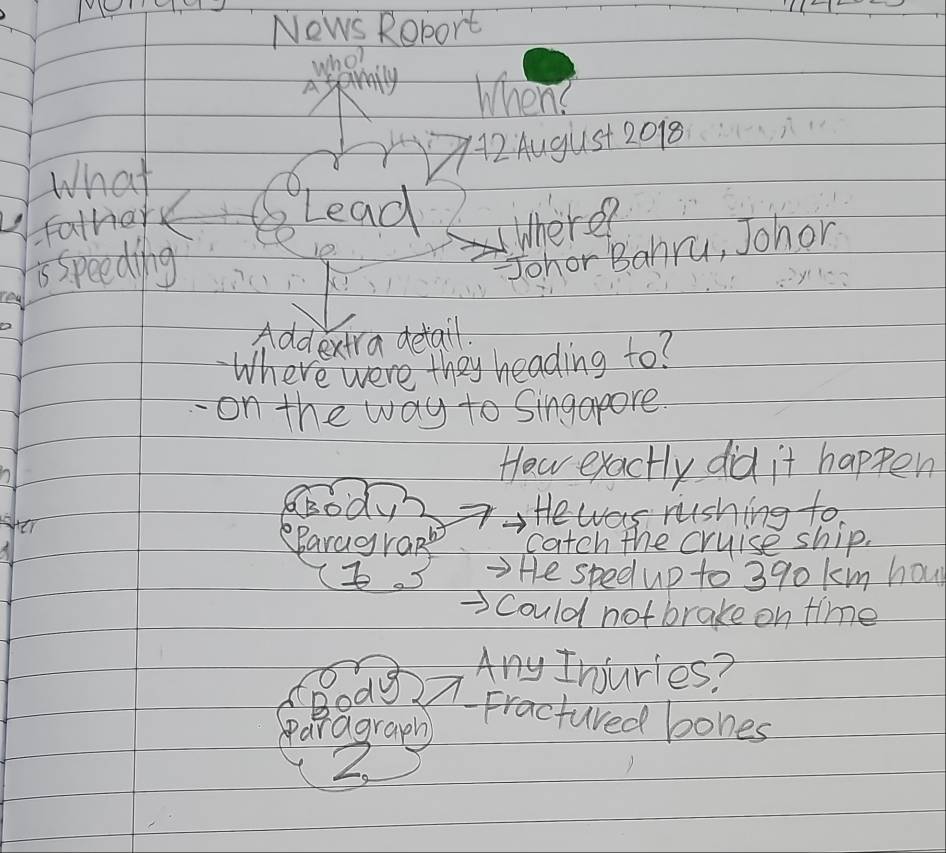 News Report
who?
A family
When?
12 August 2018
What
Father
is speeding
Lead
Where?
- Johor Bahru, Johor
Add extra detail.
- Where were they heading to?
- on the way to Singapore.
How exactly did it happen
Body
Paragraph
1
→ He was rushing to
catch the cruise ship.
→ He sped up to 390 km hou
→ Could not brake on time
Any Injuries?
Body
Paragraph
2
- Fractured bones